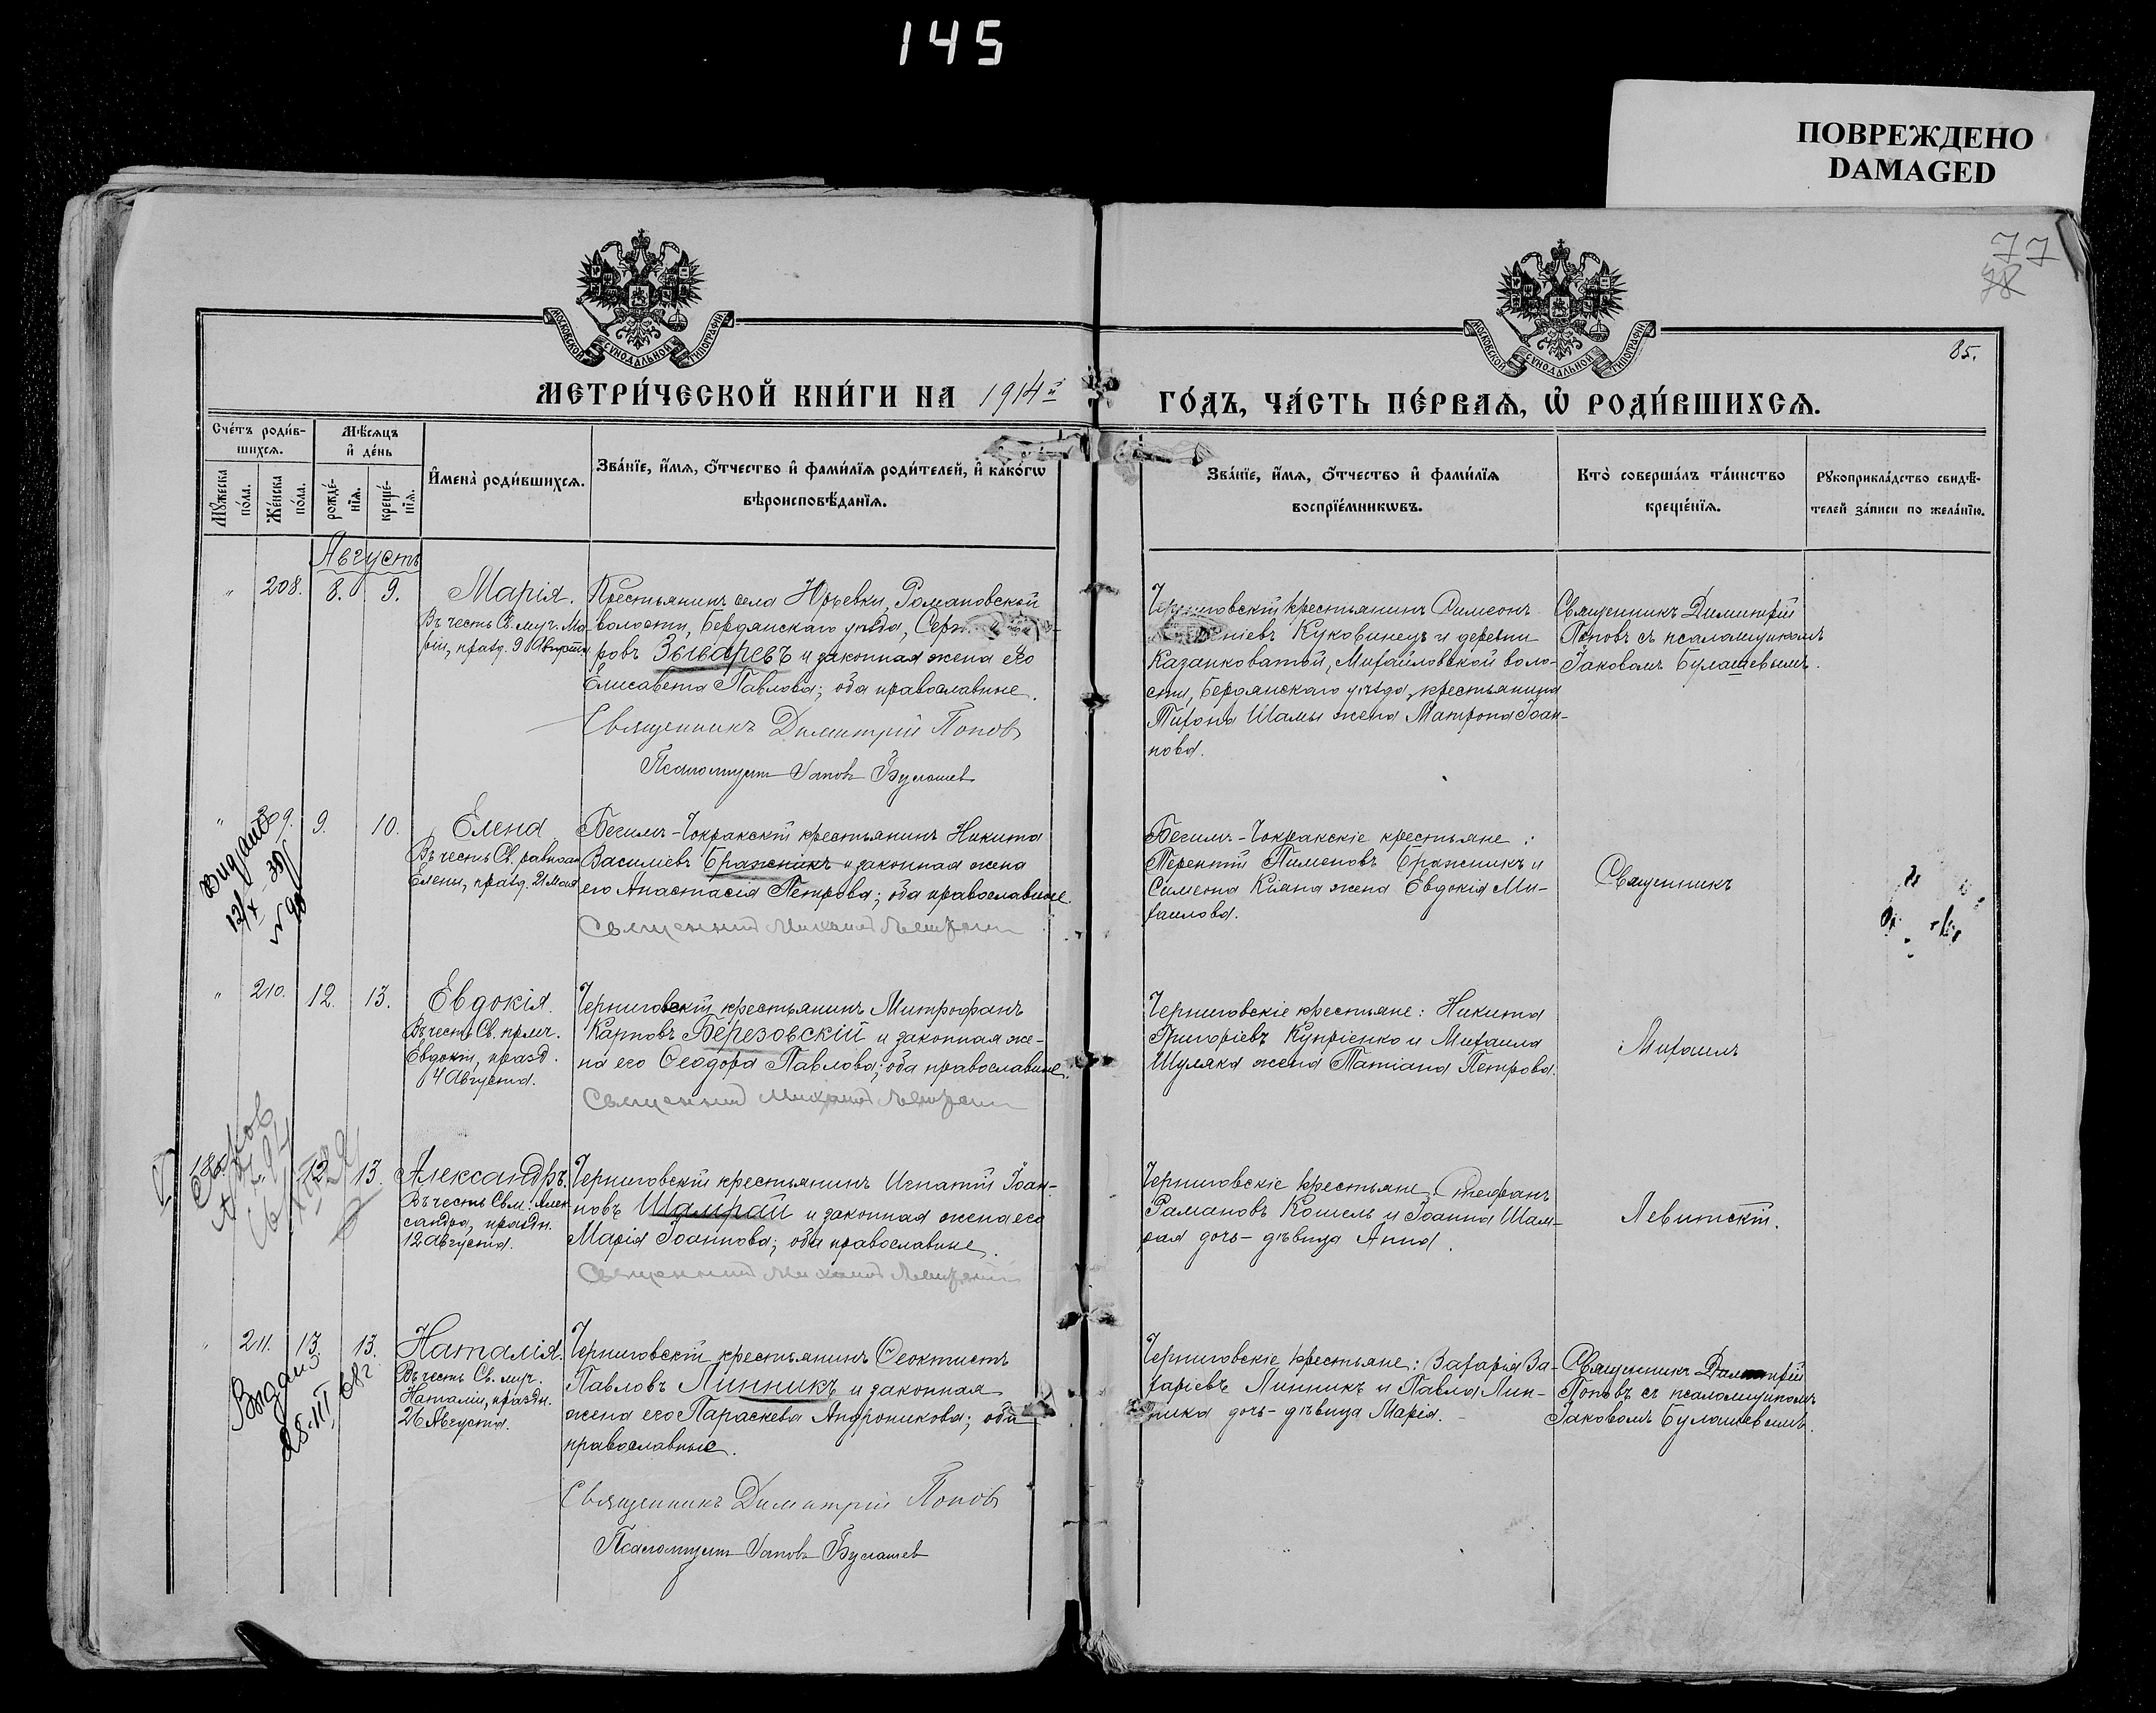 145
ПОВРЕЖДЕНО
DAMAGED
77
78
85.
МОСКОВСКОЙ СУНОДАЛЬНОЙ ТИПОГРАФІИ
МОСКОВСКОЙ СУНОДАЛЬНОЙ ТИПОГРАФІИ
МЕТРИ́ЧЕСКОЙ КНИ́ГИ НА 1914й
ГО́ДЪ, ЧА́СТЬ ПЕ́РВАѦ, Ѡ҆ РОДИ́ВШИХСѦ.
Сче́тъ роди́в-
шихсѧ.
Мꙋ́жеска
по́ла.
Же́нска
по́ла.
Мѣ́сѧцъ
и҆ де́нь
рожде́-
нїѧ.
креще́-
нїѧ.
И҆мена̀ роди́вшихсѧ.
Зва́нїе, и҆́мѧ, ѻ҆́тчество и҆ фами́лїѧ роди́телей, и҆ како́гѡ
вѣроисповѣ́данїѧ.
Зва́нїе, и҆́мѧ, ѻ҆́тчество и҆ фами́лїѧ
воспрїе́мникѡвъ.
Кто̀ соверша́лъ та́инство
креще́нїѧ.
Рꙋкоприкла́дство свидѣ́-
телей за́писи по жела́нїю.
Августъ
" 208. 8. 9.
Марія.
Въ честь Св. муч. Ма-
ріи, празд. 9 Августа
Крестьянинъ села Юрьевки, Романовской
волости, Бердянскаго уѣзда,
ровъ Звѣревъ и законная жена его
Елисавета Павлова; оба православные.
Священникъ Димитрій Попов
Псаломщик Яковъ Булашев
крестьянинъ Симеонъ
Куковинецъ и деревни
Казанковатой, Михайловской воло-
сти, Бердянскаго уѣзда, крестьянина
Тихона Шамы жена Матрона Іоан-
нова.
Священникъ Димитрій
Поповъ съ псаломщикомъ
Іаковомъ Булашевымъ.
" 209. 9. 10.
Видано
12/X 39
№ 90
Елена
Въ честь Св. равноап.
Елены, празд. 21 Мая
Бегимъ-Чокракскій крестьянинъ Никита
Василіевъ Бражникъ и законная жена
его Анастасія Петрова; оба православные.
Священник Михаил Левитский
Бегимъ-Чокракскіе крестьяне:
Терентій Пименовъ Бражникъ и
Симеона Кіяна жена Евдокія Ми-
хаилова.
Священникъ
" 210. 12. 13.
Евдокія.
Въ честь Св. прмч.
Евдокіи, празд.
4 Августа.
Черниговскій крестьянинъ Митрофанъ
Карповъ Березовскій и законная же-
на его Ѳеодора Павлова; оба православные.
Священник Михаил Левитский
Черниговскіе крестьяне: Никита
Григоріевъ Купріенко и Михаила
Шуляка жена Татіана Петрова.
Михаилъ
12. 13.
Александръ.
Въ честь Св. м. Алек-
сандра, праздн.
12 Августа.
Черниговскій крестьянинъ Игнатій Іоан-
новъ Шамрай и законная жена его
Марія Іоаннова; оба православные.
Священник Михаил Левитский
Черниговскіе крестьяне: Стефанъ
Романовъ Кошель и Іоанна Шам-
рая дочь-дѣвица Анна.
Левитскій.
" 211. 13. 13.
Выдано
28.III.68г
Наталія.
Въ честь Св. муч.
Наталіи, праздн.
26 Августа.
Черниговскій крестьянинъ Ѳеоктистъ
Павловъ Линникъ и законная
жена его Параскева Андроникова; оба
православные.
Священникъ Димитрій Попов
Псаломщик Яковъ Булашев
Черниговскіе крестьяне: Захарія За-
харіевъ Линникъ и Павла Лин-
ника дочь-дѣвица Марія.
Священникъ Димитрій
Поповъ съ псаломщикомъ
Іаковомъ Булашевымъ.